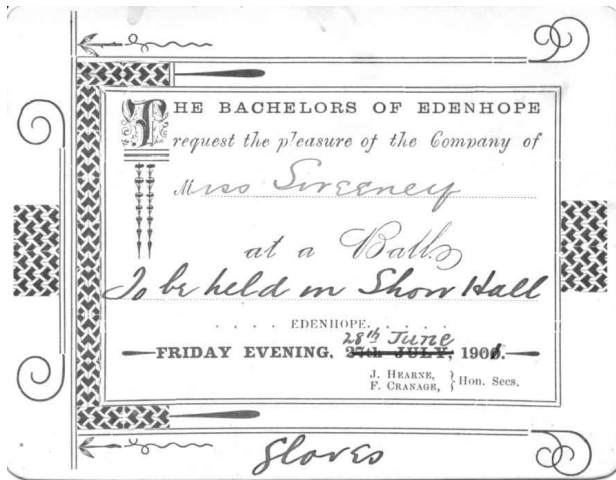 THE BACHELORS OF EDENHOPE
request the pleasure of the Company of
Miss Sweeney
at a Ball
To be held in Show Hall
EDENHOPE.
28th June
FRIDAY EVENING, 27th JULY, 1901.
J. HEARNE,
F. CRANAGE, } Hon. Secs.
Gloves